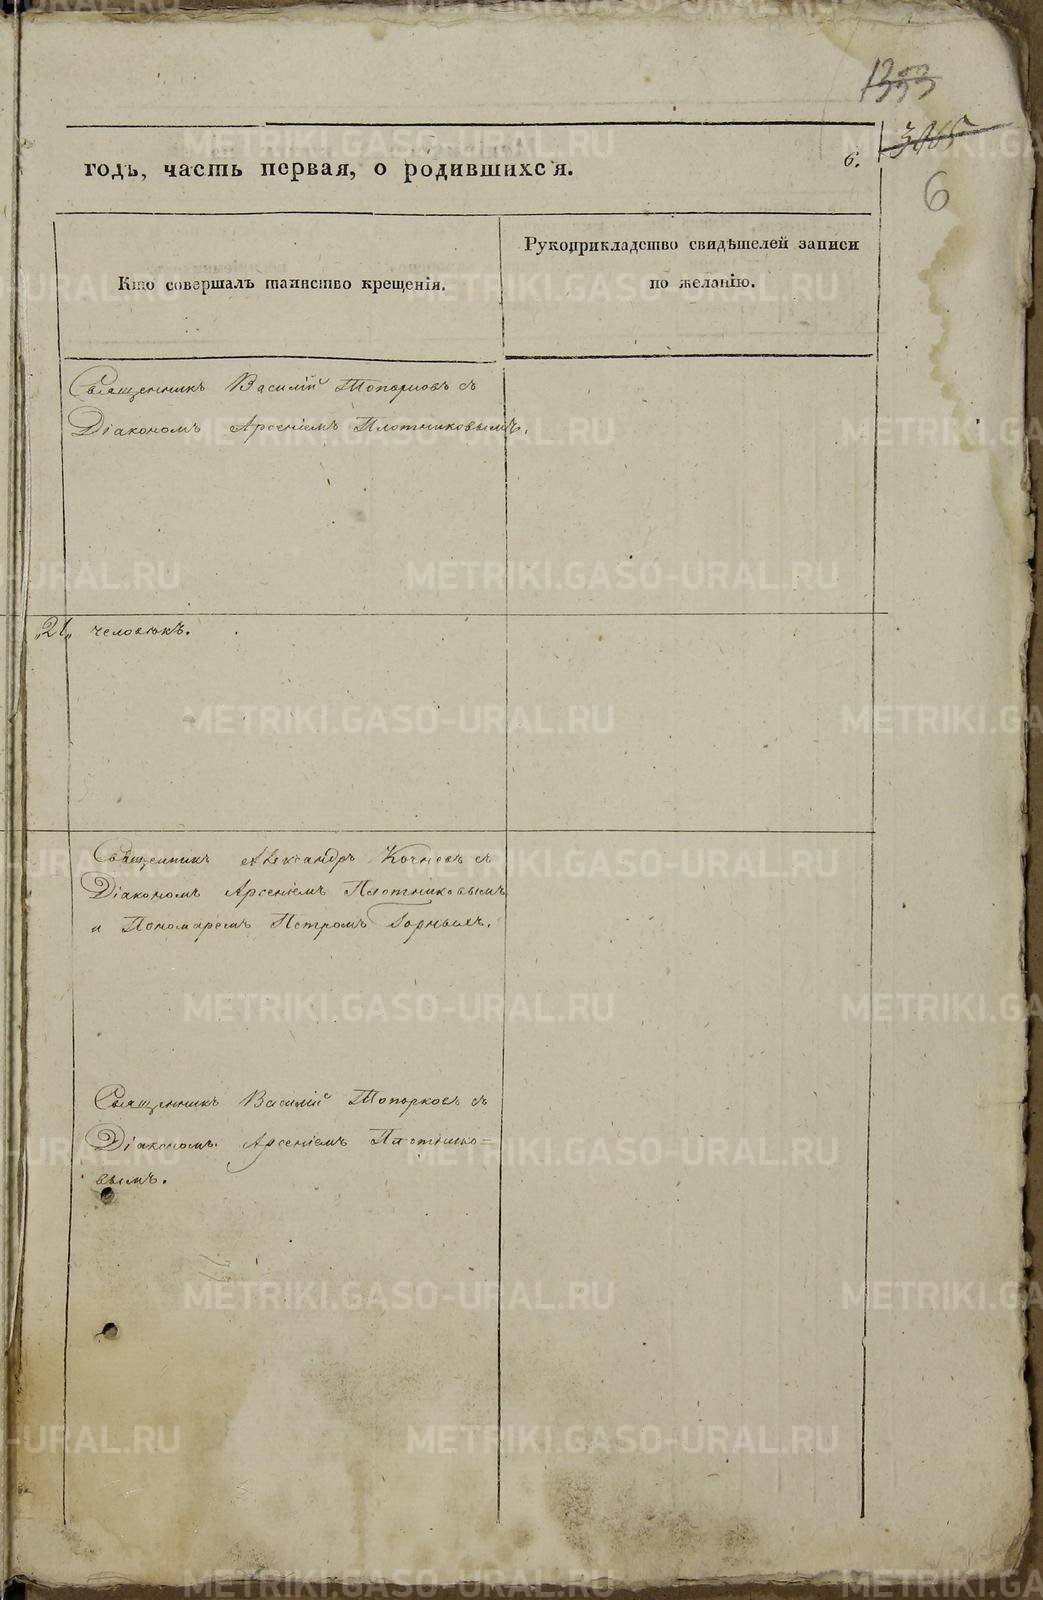 1333
3065
6
годъ, часть первая, о родившихся.
6.
Кто совершалъ таинство крещенія.
Рукоприкладство свидѣтелей записи
по желанію.
Священникъ Василій Топорковъ съ
Діакономъ Арсеніемъ Плотниковымъ.
„21„ человѣкъ.
Священникъ Александръ Кочневъ съ
Діакономъ Арсеніемъ Плотниковымъ
и Пономаремъ Петромъ Горныхъ.
Священникъ Василій Топорковъ съ
Діакономъ Арсеніемъ Плотнико=
вымъ.
METRIKI.GASO-URAL.RU